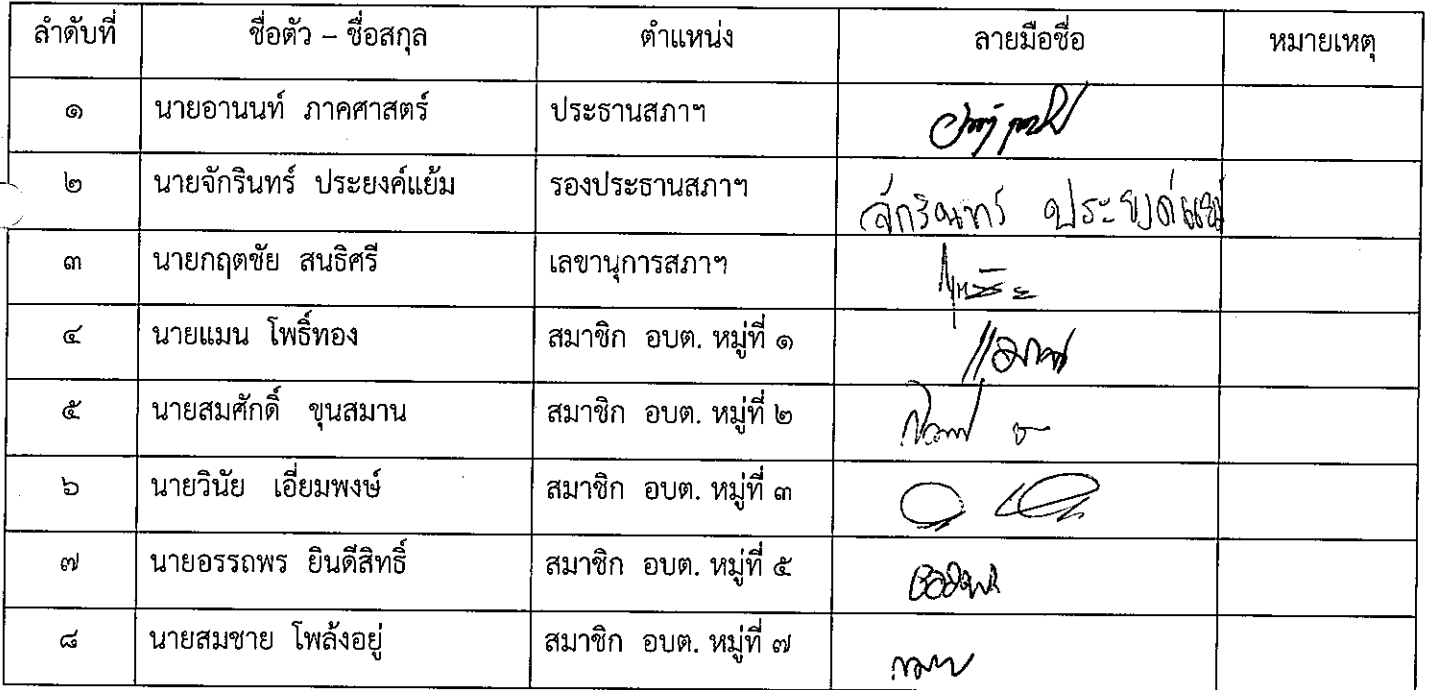 ลำดับที่ ชื่อตัว – ชื่อสกุล ตำแหน่ง ลายมือชื่อ หมายเหตุ
๑ นายอานนท์ ภาคศาสตร์ ประธานสภาฯ
๒ นายจักรินทร์ ประยงค์แย้ม รองประธานสภาฯ จักรินทร์ ประยงค์แย้ม
๓ นายกฤตชัย สนธิศรี เลขานุการสภาฯ
๔ นายแมน โพธิ์ทอง สมาชิก อบต. หมู่ที่ ๑
๕ นายสมศักดิ์ ขุนสมาน สมาชิก อบต. หมู่ที่ ๒
๖ นายวินัย เอี่ยมพงษ์ สมาชิก อบต. หมู่ที่ ๓
๗ นายอรรถพร ยินดีสิทธิ์ สมาชิก อบต. หมู่ที่ ๕
๘ นายสมชาย โพล้งอยู่ สมาชิก อบต. หมู่ที่ ๗